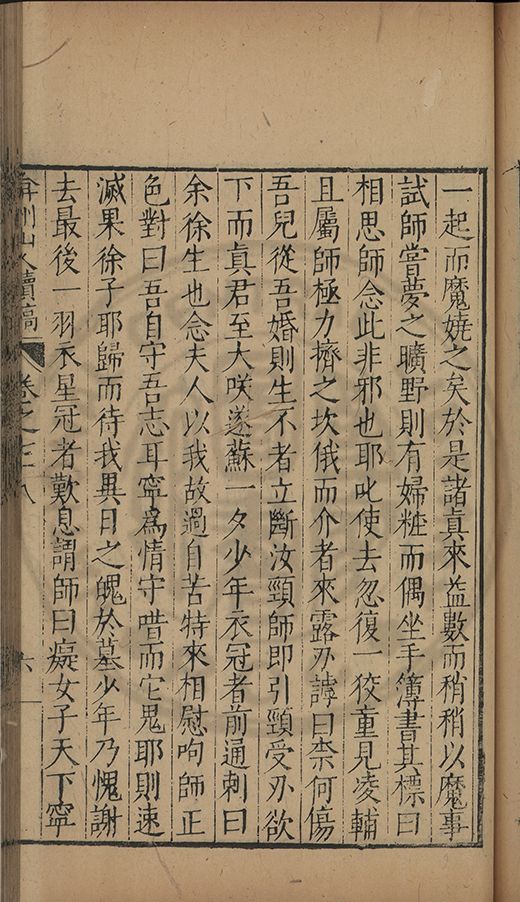 一起而魔嬈之矣於是諸眞來益數而稍稍以魔事
試師嘗夢之曠野則有婦粧而偶坐手簿書其標曰
相思師念此非邪也耶叱使去忽復一狡童見凌輔
且屬師極力擠之坎俄而介者來露刃謼曰柰何傷
吾兒從吾婚則生不者立斷汝頸師即引頸受刃欲
下而眞君至大咲遂蘇一夕少年衣冠者前通刺曰
余徐生也念夫人以我故過自苦特來相慰呴師正
色對曰吾自守吾志耳寧爲情守唶而它鬼耶則速
滅果徐子耶歸而待我異日之魄於墓少年乃愧謝
去最後一羽衣星冠者歎息謂師曰癡女子天下寧
弇州山人續稿 卷之七十八 六